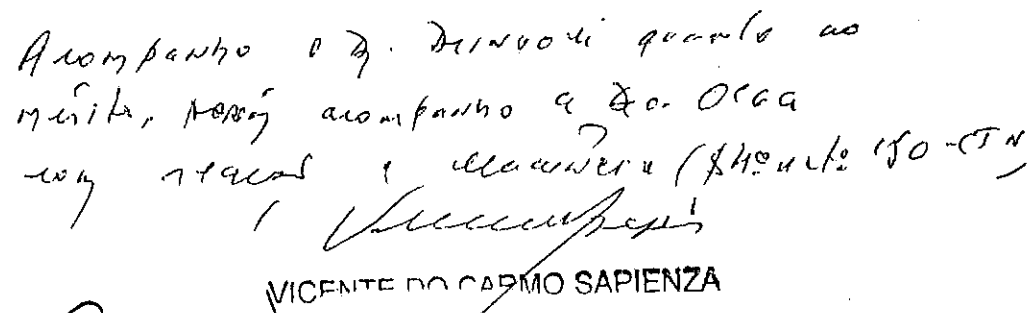 Acompanho o D. quanto ao
mérito, porém acompanho a Dra. Olga
com relação à decadência (§4º art. 150-CTN)
VICENTE DO CARMO SAPIENZA